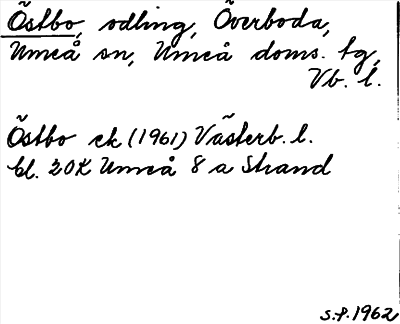 Östbo, odling, Överboda,
Umeå sn, Umeå doms. tg,
Vb. l.
Östbo ek (1961) Västerb. l.
bl. 20K Umeå 8 a Strand
S.P. 1962